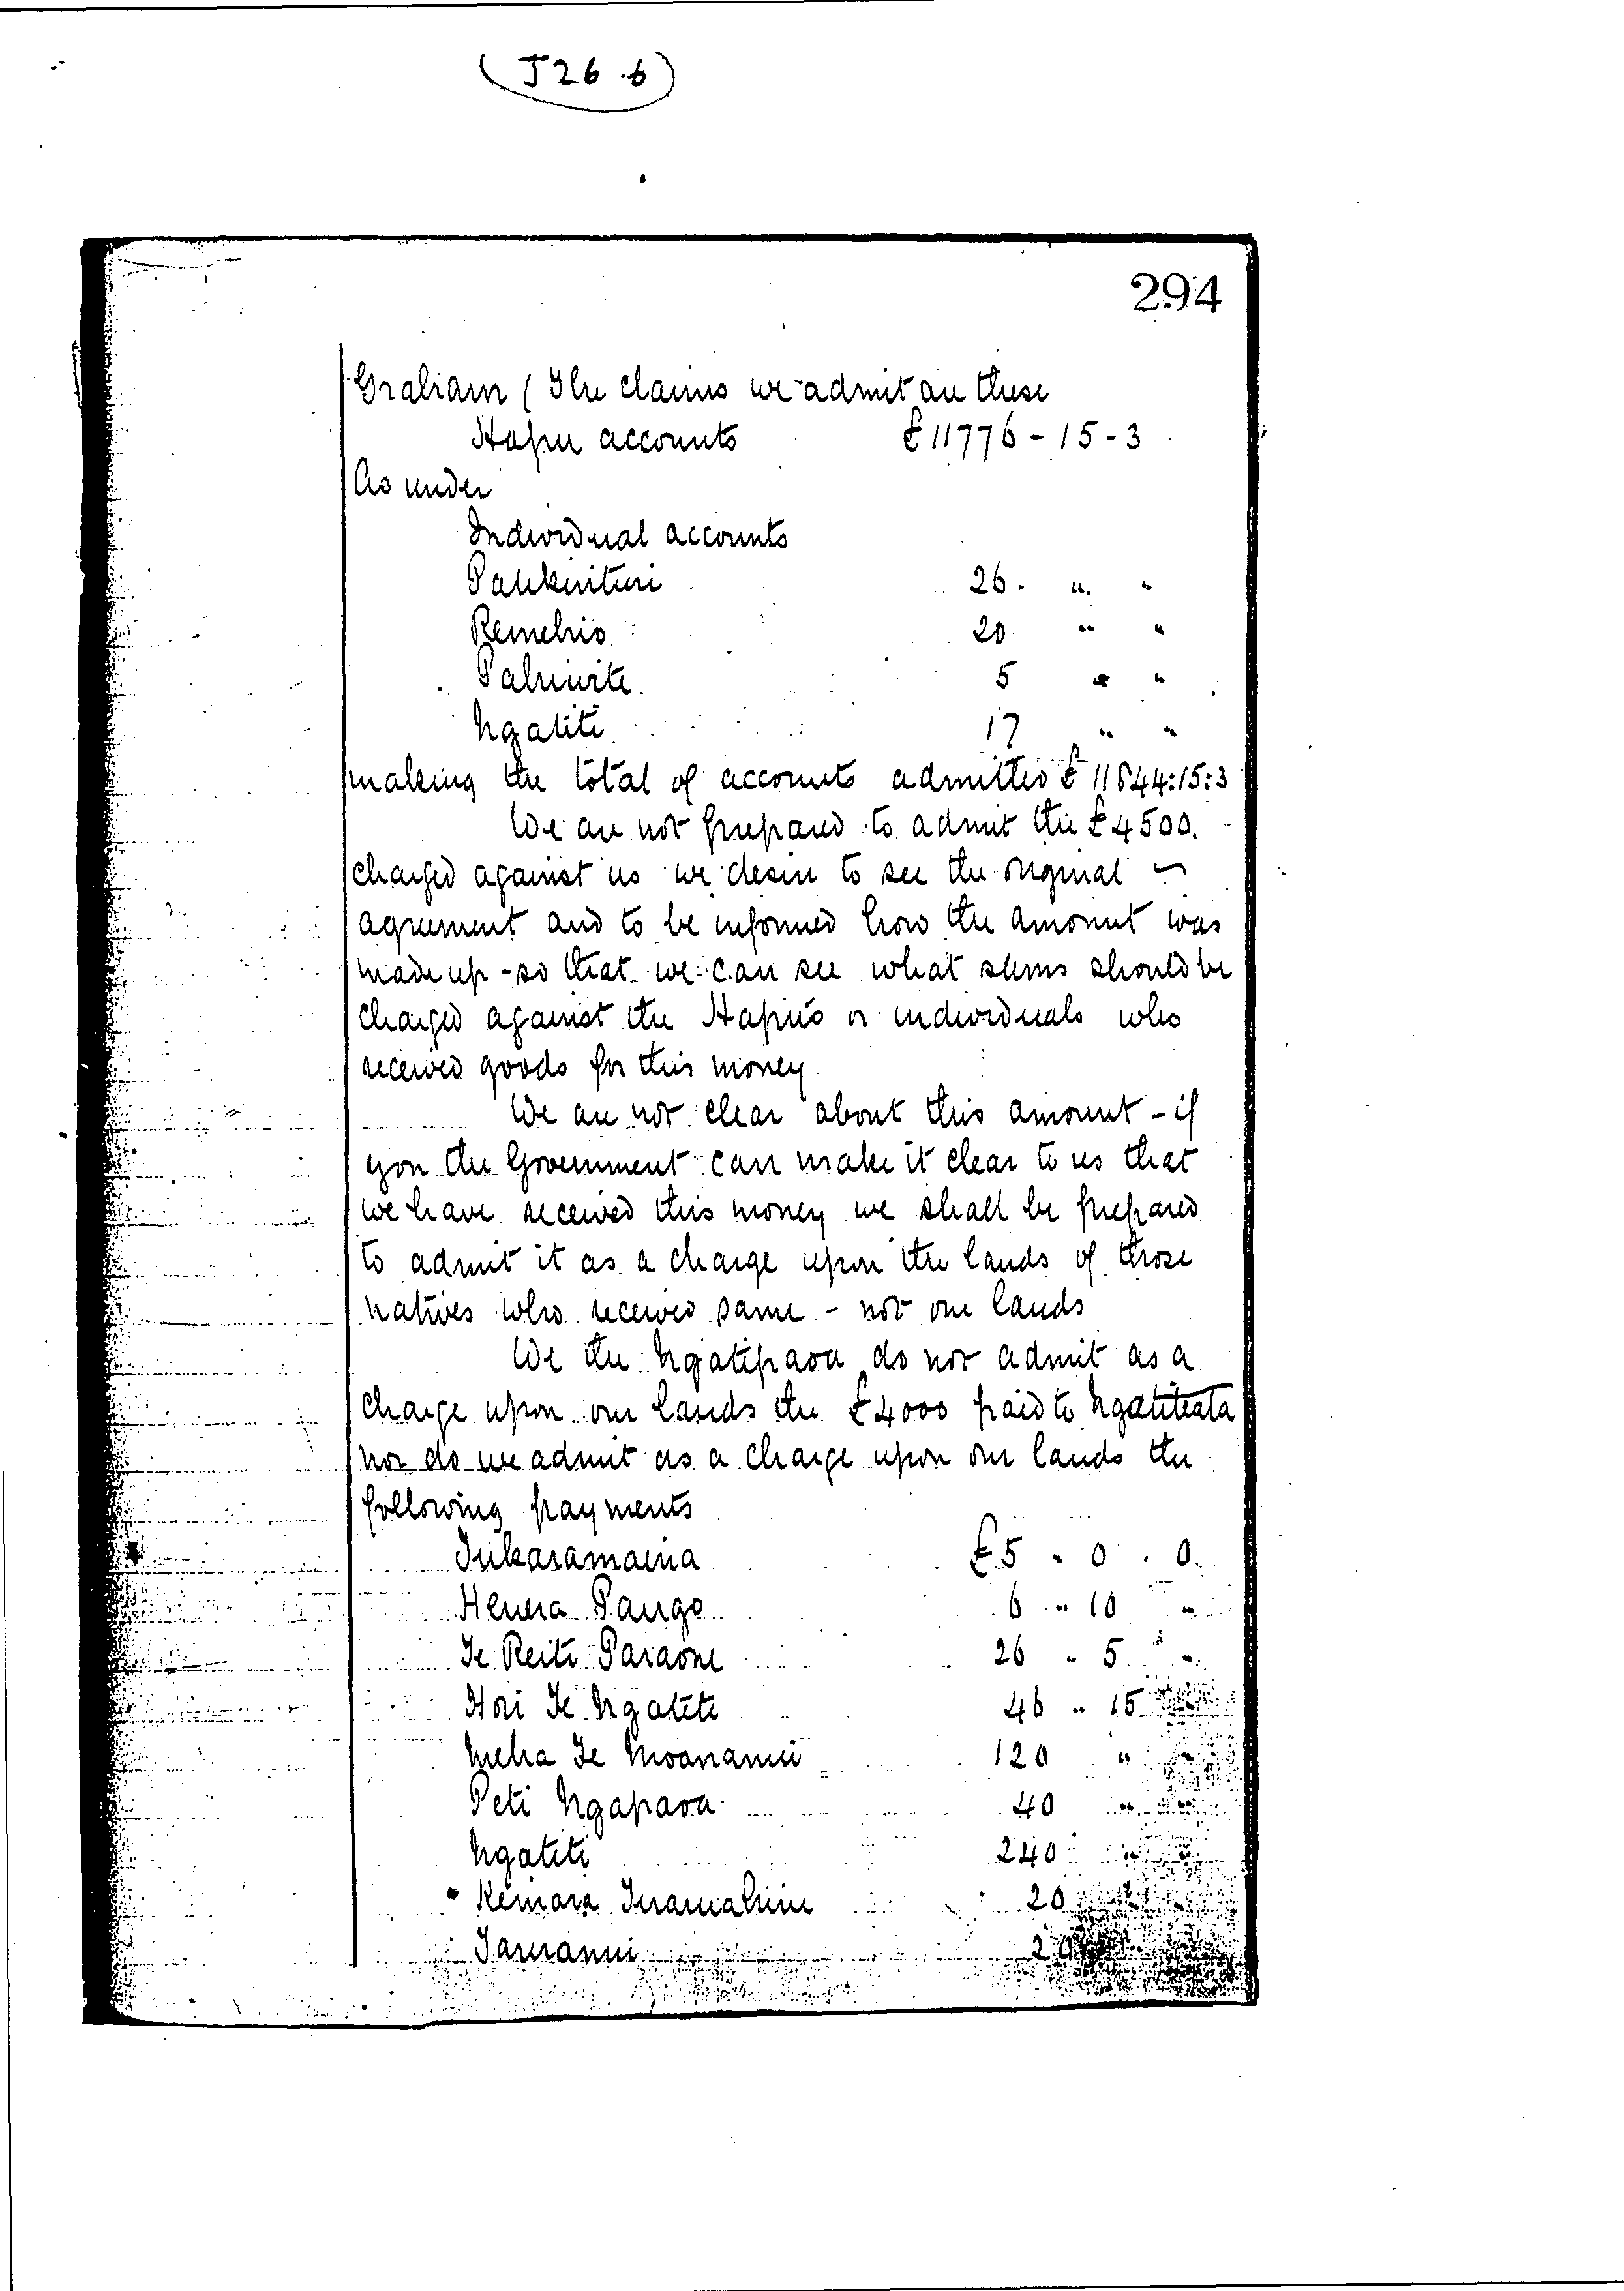 (J26.6)
294
Graham (The claims we admit are these
Hapu accounts £11776-15-3
As under
Individual accounts
26. " "
Remehio 20 " "
5 " "
Ngatiti 17 " "
making the total of accounts admitted £11844:15:3
We are not prepared to admit the £4500.
charged against us we desire to see the original
agreement and to be informed how the amount was
made up - so that we can see what sums should be
charged against the Hapu's or individuals who
received goods for this money
We are not clear about this amount - if
you the Government can make it clear to us that
we have received this money we shall be prepared
to admit it as a charge upon the lands of those
natives who received same - not our lands
We the Ngatipaoa do not admit as a
charge upon our lands the £4000 paid to Ngatiteata
nor do we admit as a charge upon our lands the
following payments
Tukaramaina £5 . 0 . 0.
Henera Pango 6 " 10 "
Te Reiti Paraone 26 " 5 "
Hori Te Ngatete 46 " 15
Meha Te Moananui 120 "
Peti Ngapaoa 40 "
Ngatiti 240
Kemara 20
Tauranui 20